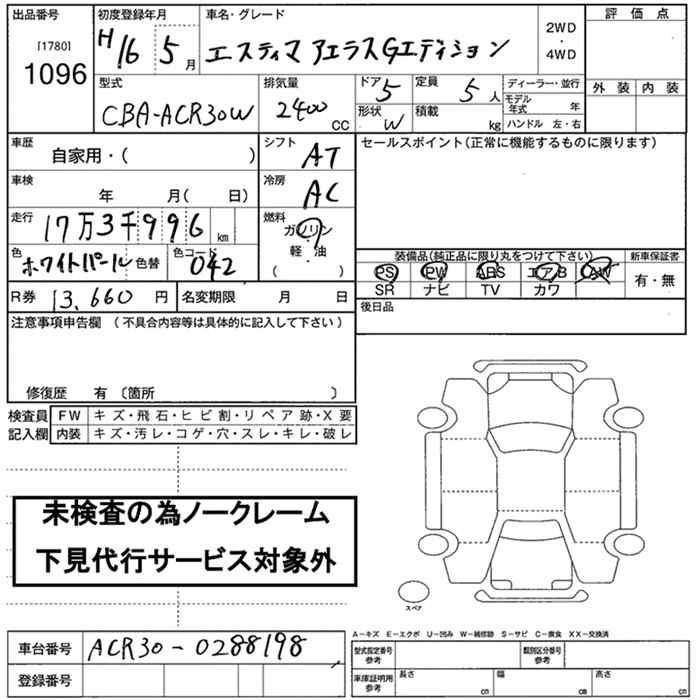 出品番号 初度登録年月 車名・グレード 評価点
[1780] 1096
H16 5月 エスティマ アエラスGエディション 2WD・4WD
外装 内装
型式 CBA-ACR30W 排気量 2400 CC
ドア 5 形状 W 定員 5人 積載 kg
ディーラー・並行
モデル年式 年
ハンドル 左・右
車歴 自家用・( ) シフト AT
セールスポイント(正常に機能するものに限ります)
車検 年 月( 日) 冷房 AC
走行 17万3千996 km 燃料 ガソリン・軽・油 ( )
色 ホワイトパール 色替 色コード 042
装備品(純正品に限り丸をつけて下さい) 新車保証書
PS PW ABS エアB AW 有・無
SR ナビ TV カワ
R券 13,660 円 名変期限 月 日
後日品
注意事項申告欄 (不具合内容等は具体的に記入して下さい)
修復歴 有 〔箇所 〕
検査員記入欄
FW キズ・飛石・ヒビ割・リペア跡・X要
内装 キズ・汚レ・コゲ・穴・スレ・キレ・破レ
未検査の為ノークレーム
下見代行サービス対象外
スペア
A-キズ E-エクボ U-凹み W-補修跡 S-サビ C-腐食 XX-交換済
車台番号 ACR30-0288198
型式指定番号 参考 類別区分番号 参考
登録番号
車庫証明用 参考 長さ cm 幅 cm 高さ cm